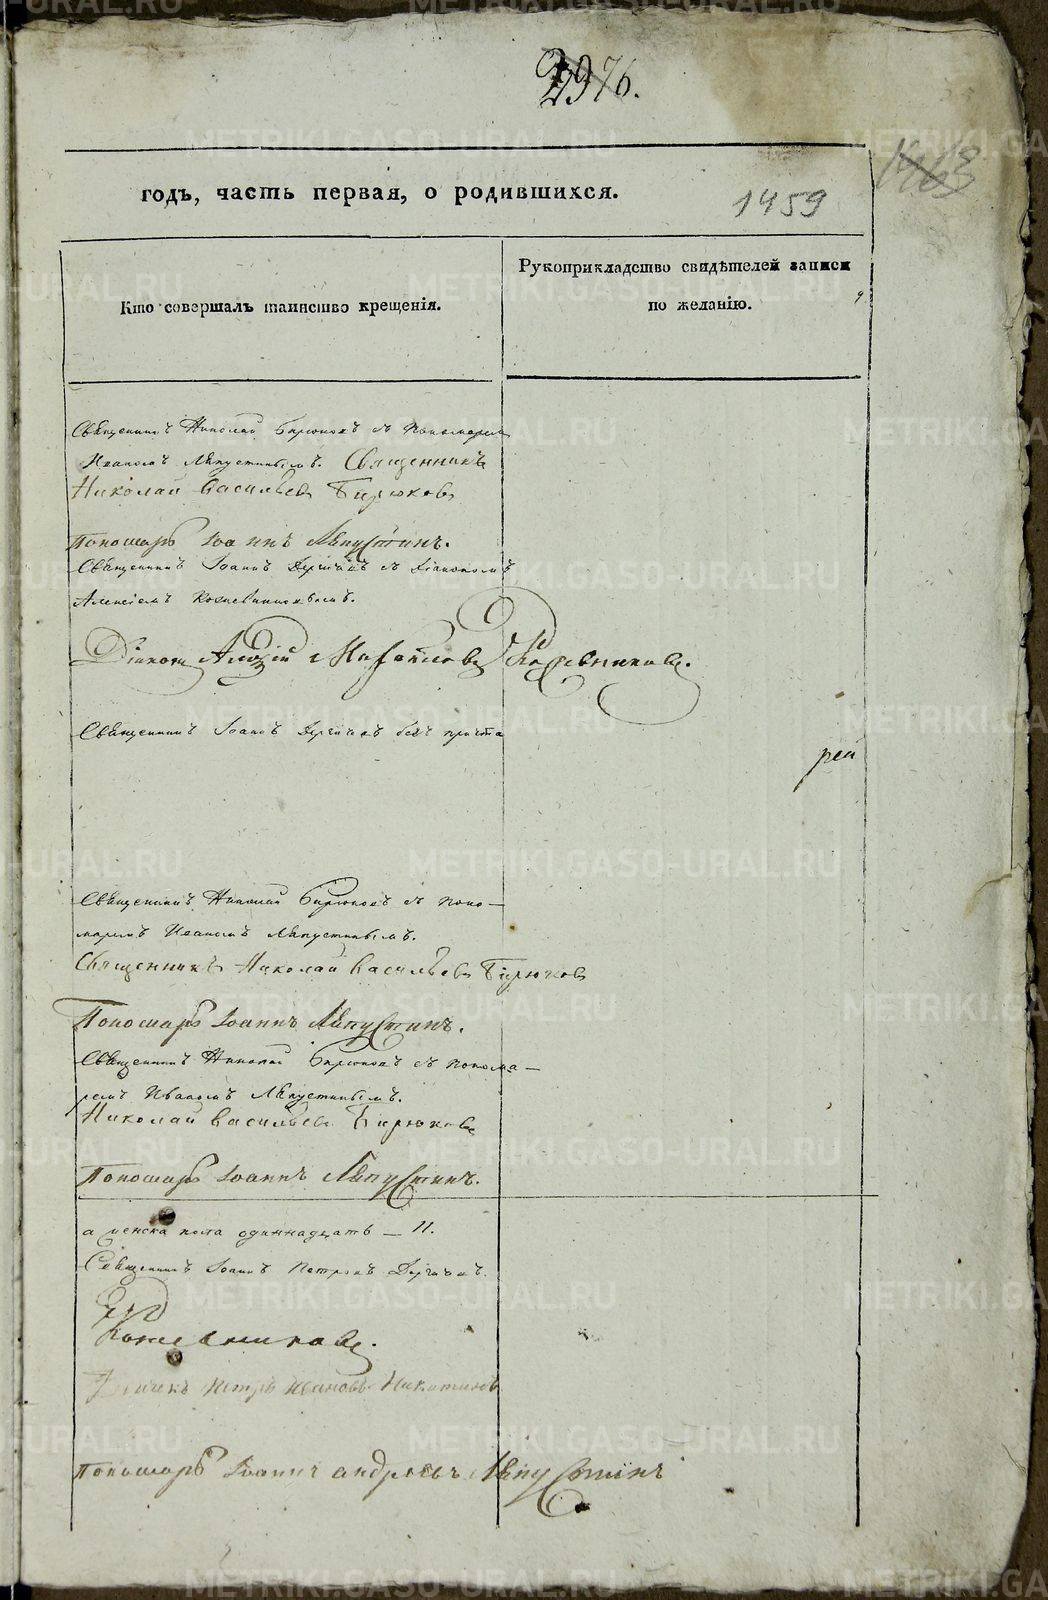 2976.
1463
годъ, часть первая, о родившихся.
1459
Кто совершалъ таинство крещенія.
Рукоприкладство свидѣтелей записи
по желанію.
Священникъ Николай Бирюковъ съ Пономаремъ
Иваномъ Лѣпустинымъ. Священникъ
Николай Васильевъ Бирюковъ
Пономарь Іоаннъ Лѣпустинъ.
Священникъ Іоаннъ съ Діакономъ
Алексіемъ Кожевниковымъ.
Діаконъ Алексій Кожевниковъ.
Священникъ Іоаннъ безъ причта
рей
Священникъ Николай Бирюковъ съ Поно-
маремъ Иваномъ Лѣпустинымъ.
Священникъ Николай Васильевъ Бирюковъ
Пономарь Іоаннъ Лѣпустинъ.
Священникъ Николай Бирюковъ съ Понома-
ремъ Иваномъ Лѣпустинымъ.
Николай Васильевъ Бирюковъ
Пономарь Іоаннъ Лѣпустинъ.
а женска пола одиннадцать — 11.
Священникъ Іоаннъ Петровъ
Кожевниковъ.
Петръ Ивановъ Никитинъ
Пономарь Іоаннъ Андреевъ Лѣпустинъ
METRIKI.GASO-URAL.RU